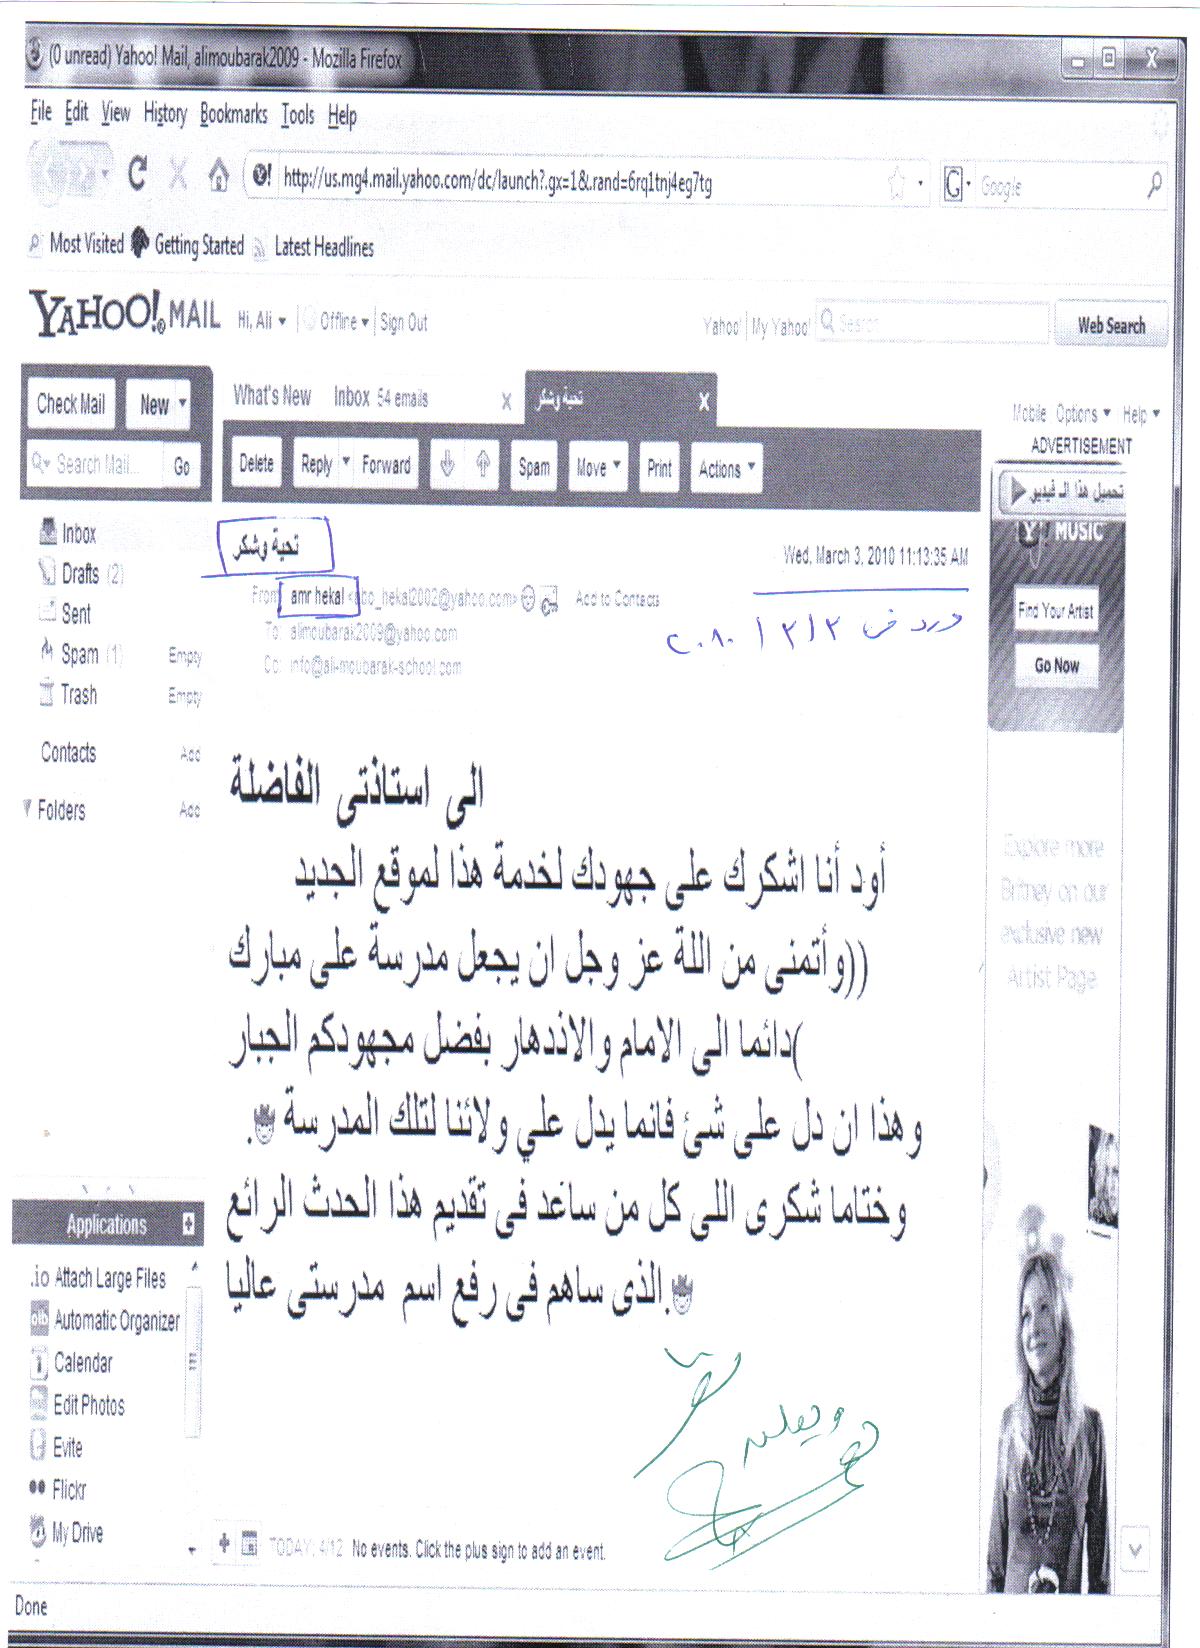 (0 unread) Yahoo! Mail, alimoubarak2009 - Mozilla Firefox
File Edit View History Bookmarks Tools Help
http://us.mg4.mail.yahoo.com/dc/launch?.gx=1&.rand=6rq1tnj4eg7tg
Google
Most Visited Getting Started Latest Headlines
YAHOO! MAIL Hi, Ali Offline Sign Out
Yahoo! My Yahoo! Search Web Search
Check Mail New
What's New Inbox 54 emails X تحية وشكر X
Mobile Options Help
ADVERTISEMENT
Search Mail... Go
Delete Reply Forward Spam Move Print Actions
تحميل هذا الـ فيديو
Y! MUSIC
Find Your Artist
Go Now
Inbox
Drafts (2)
Sent
Spam (1) Empty
Trash Empty
Contacts Add
Folders Add
تحية وشكر
Wed, March 3, 2010 11:13:35 AM
From: amr hekal <abo_hekal2002@yahoo.com> Add to Contacts
To: alimoubarak2009@yahoo.com
Cc: info@ali-moubarak-school.com
ورد فى ٣ / ٣ /
الى استاذتى الفاضلة
أود أنا اشكرك على جهودك لخدمة هذا لموقع الجديد
((وأتمنى من اللة عز وجل ان يجعل مدرسة على مبارك
)دائما الى الامام والاذدهار بفضل مجهودكم الجبار
وهذا ان دل على شئ فانما يدل علي ولائنا لتلك المدرسة .
وختاما شكرى اللى كل من ساعد فى تقديم هذا الحدث الرائع
.الذى ساهم فى رفع اسم مدرستى عاليا
Explore more
Britney on our
exclusive new
Artist Page
Applications
Attach Large Files
Automatic Organizer
Calendar
Edit Photos
Evite
Flickr
My Drive
TODAY: 4/12 No events. Click the plus sign to add an event.
Done